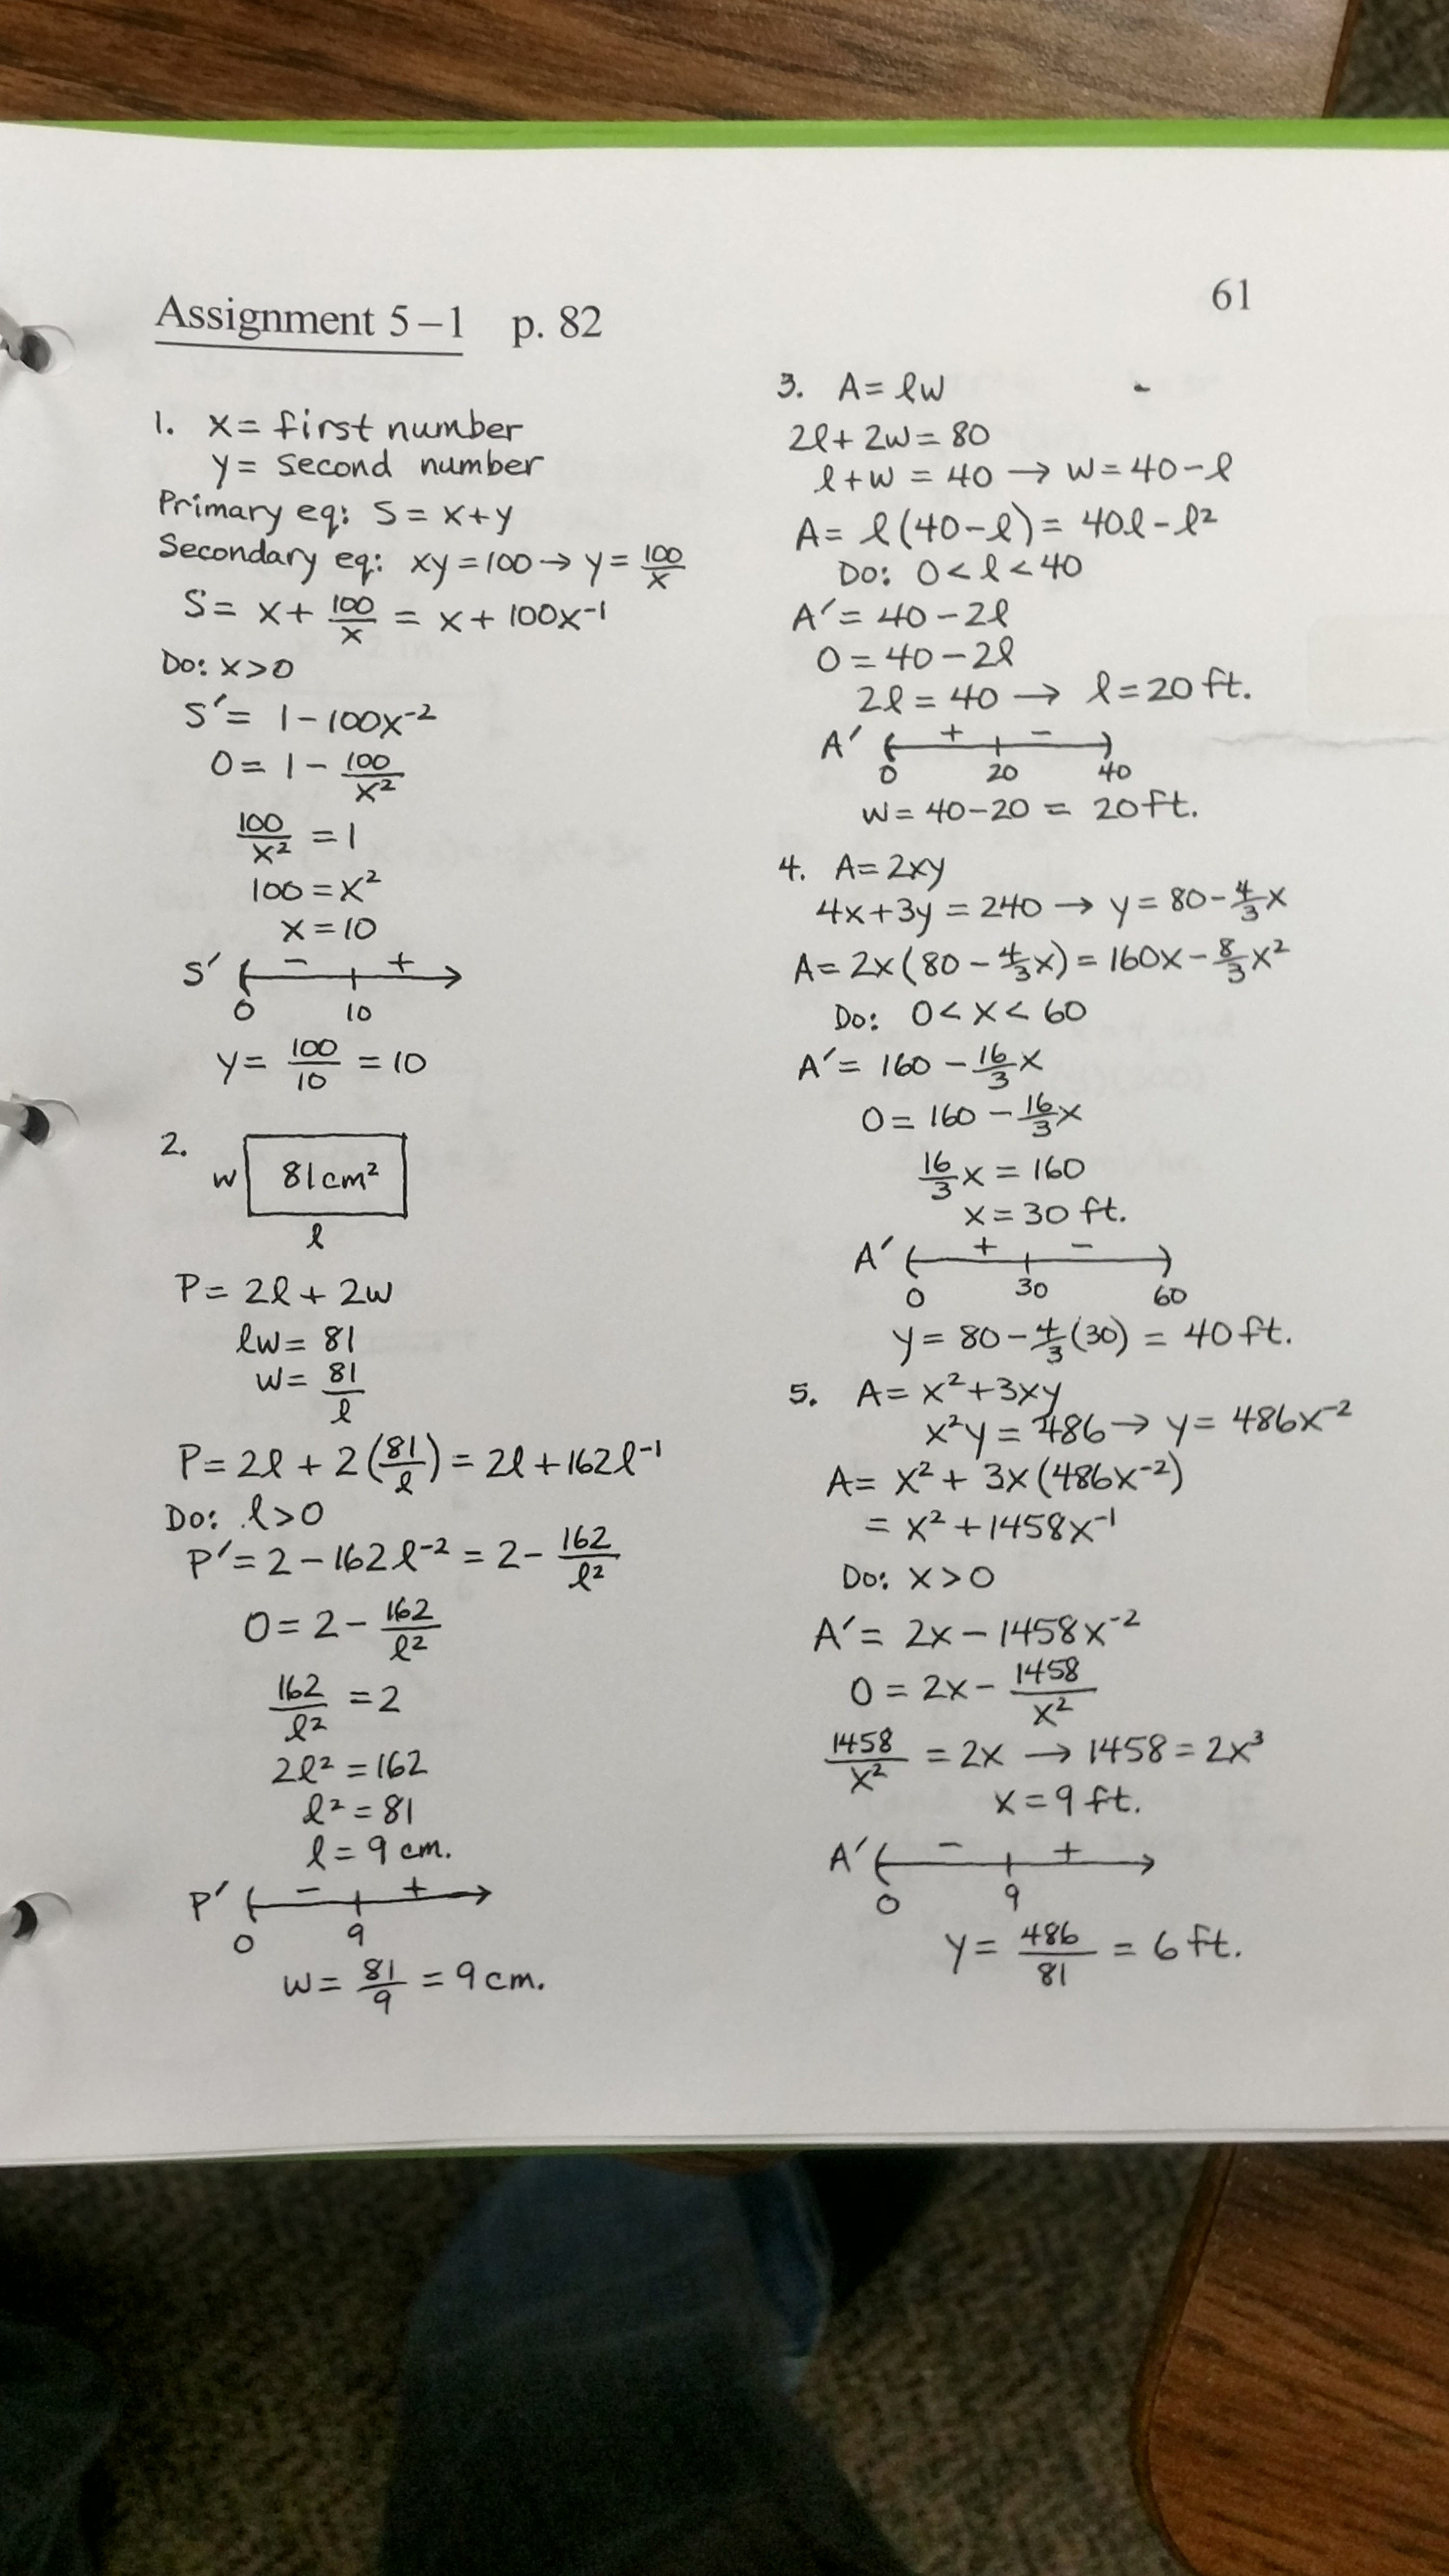 Assignment 5–1 p. 82
61
1. x = first number
y = second number
Primary eq: S = x+y
Secondary eq: xy = 100 → y = 100/x
S = x + 100/x = x + 100x⁻¹
Do: x>0
S′ = 1 − 100x⁻²
0 = 1 − 100/x²
100/x² = 1
100 = x²
x = 10
S′ − +
0 10
y = 100/10 = 10
2.
w 81cm²
l
P = 2l + 2w
lw = 81
w = 81/l
P = 2l + 2(81/l) = 2l + 162l⁻¹
Do: l>0
P′ = 2 − 162l⁻² = 2 − 162/l²
0 = 2 − 162/l²
162/l² = 2
2l² = 162
l² = 81
l = 9 cm.
P′ − +
0 9
w = 81/9 = 9 cm.
3. A = lw
2l + 2w = 80
l + w = 40 → w = 40 − l
A = l(40−l) = 40l − l²
Do: 0 < l < 40
A′ = 40 − 2l
0 = 40 − 2l
2l = 40 → l = 20 ft.
A′ + −
0 20 40
w = 40−20 = 20 ft.
4. A = 2xy
4x + 3y = 240 → y = 80 − 4/3x
A = 2x(80 − 4/3x) = 160x − 8/3x²
Do: 0 < x < 60
A′ = 160 − 16/3x
0 = 160 − 16/3x
16/3x = 160
x = 30 ft.
A′ + −
0 30 60
y = 80 − 4/3(30) = 40 ft.
5. A = x² + 3xy
x²y = 486 → y = 486x⁻²
A = x² + 3x(486x⁻²)
= x² + 1458x⁻¹
Do: x>0
A′ = 2x − 1458x⁻²
0 = 2x − 1458/x²
1458/x² = 2x → 1458 = 2x³
x = 9 ft.
A′ − +
0 9
y = 486/81 = 6 ft.